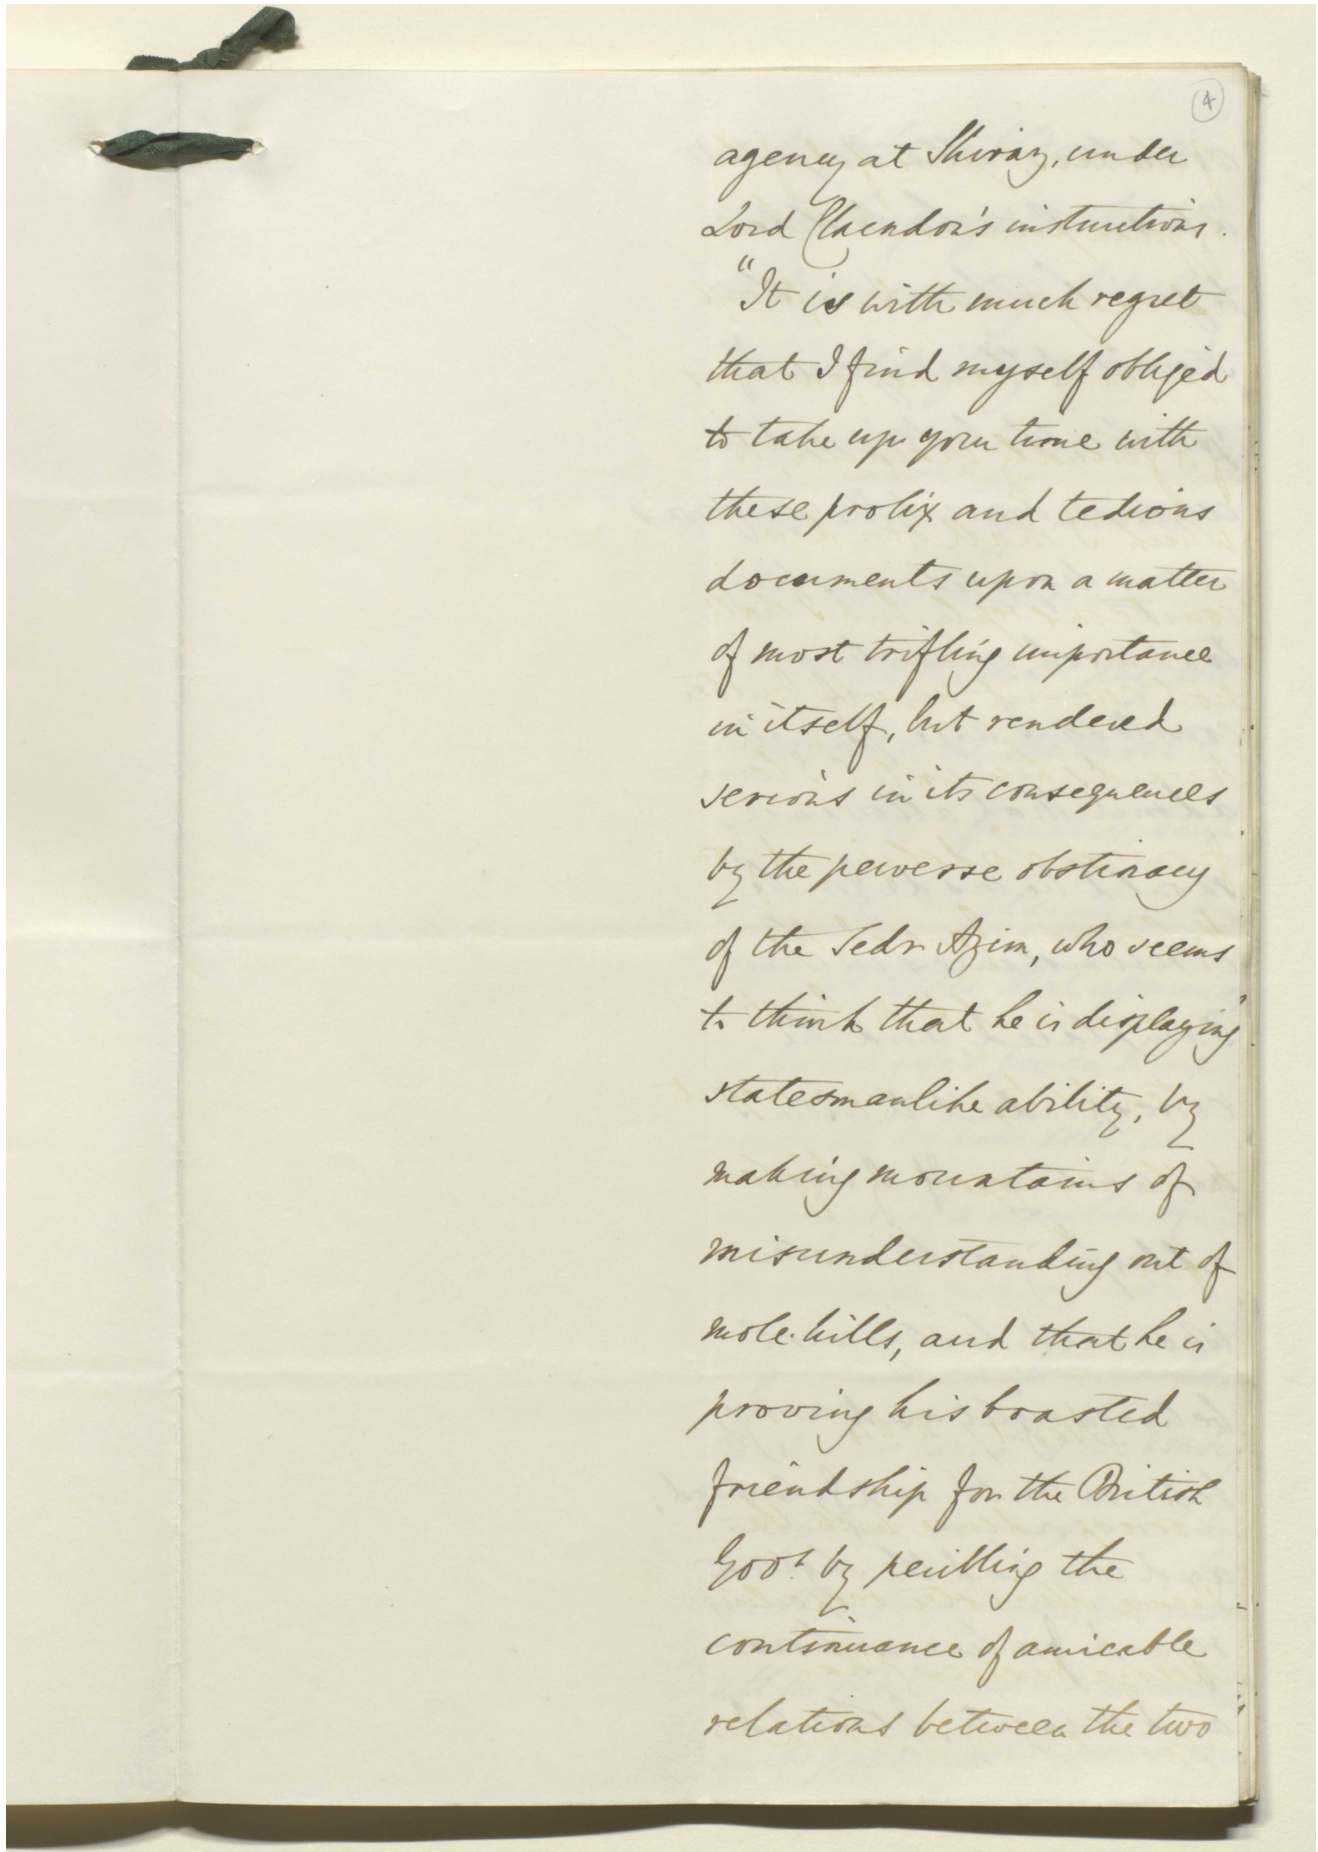 4
agency at Shiraz, under
Lord Clarendon's instructions.
"It is with much regret
that I find myself obliged
to take up your time with
these prolix and tedious
documents upon a matter
of most trifling importance
in itself, but rendered
serious in its consequences
by the perverse obstinacy
of the Sedr Azim, who seems
to think that he is displaying
statesmanlike ability, by
making mountains of
misunderstanding out of
mole-hills, and that he is
proving his boasted
friendship for the British
Govt. by perilling the
continuance of amicable
relations between the two